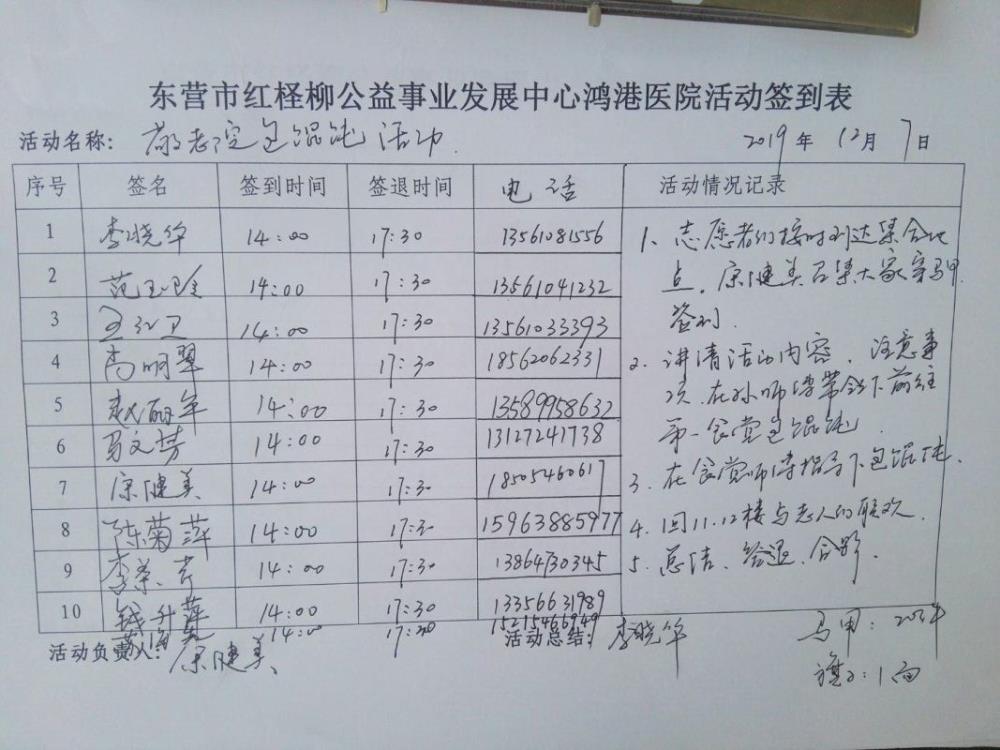 东营市红柽柳公益事业发展中心鸿港医院活动签到表
活动名称： 敬老院包馄饨活动 2019 年 12 月 7 日
序号 签名 签到时间 签退时间 电话 活动情况记录
1 李晓华 14:00 17:30 13561081556
2 范玉 14:00 17:30 13561041232
3 王红卫 14:00 17:30 13561033393
4 尚明翠 14:00 17:30 18562062331
5 赵丽华 14:00 17:30 13589958632
6 马文芳 14:00 17:30 13127241738
7 康健美 14:00 17:30 18505460617
8 陈菊萍 14:00 17:30 15963885977
9 李芹 14:00 17:30 13864730345
10 钱升萍 14:00 17:30 13356631989
14:00 17:30 15215466949
1、志愿者们按时到达集合地
点，康健美召集大家穿马甲
签到.
2、讲清活动内容，注意事
项，在孙师傅带领下前往
第一食堂包馄饨.
3、在食堂师傅指导下包馄饨.
4、回11.12楼与老人们联欢.
5、总结、签退、合影.
活动负责人： 康健美 活动总结： 李晓华
马甲：20件
旗子：1面